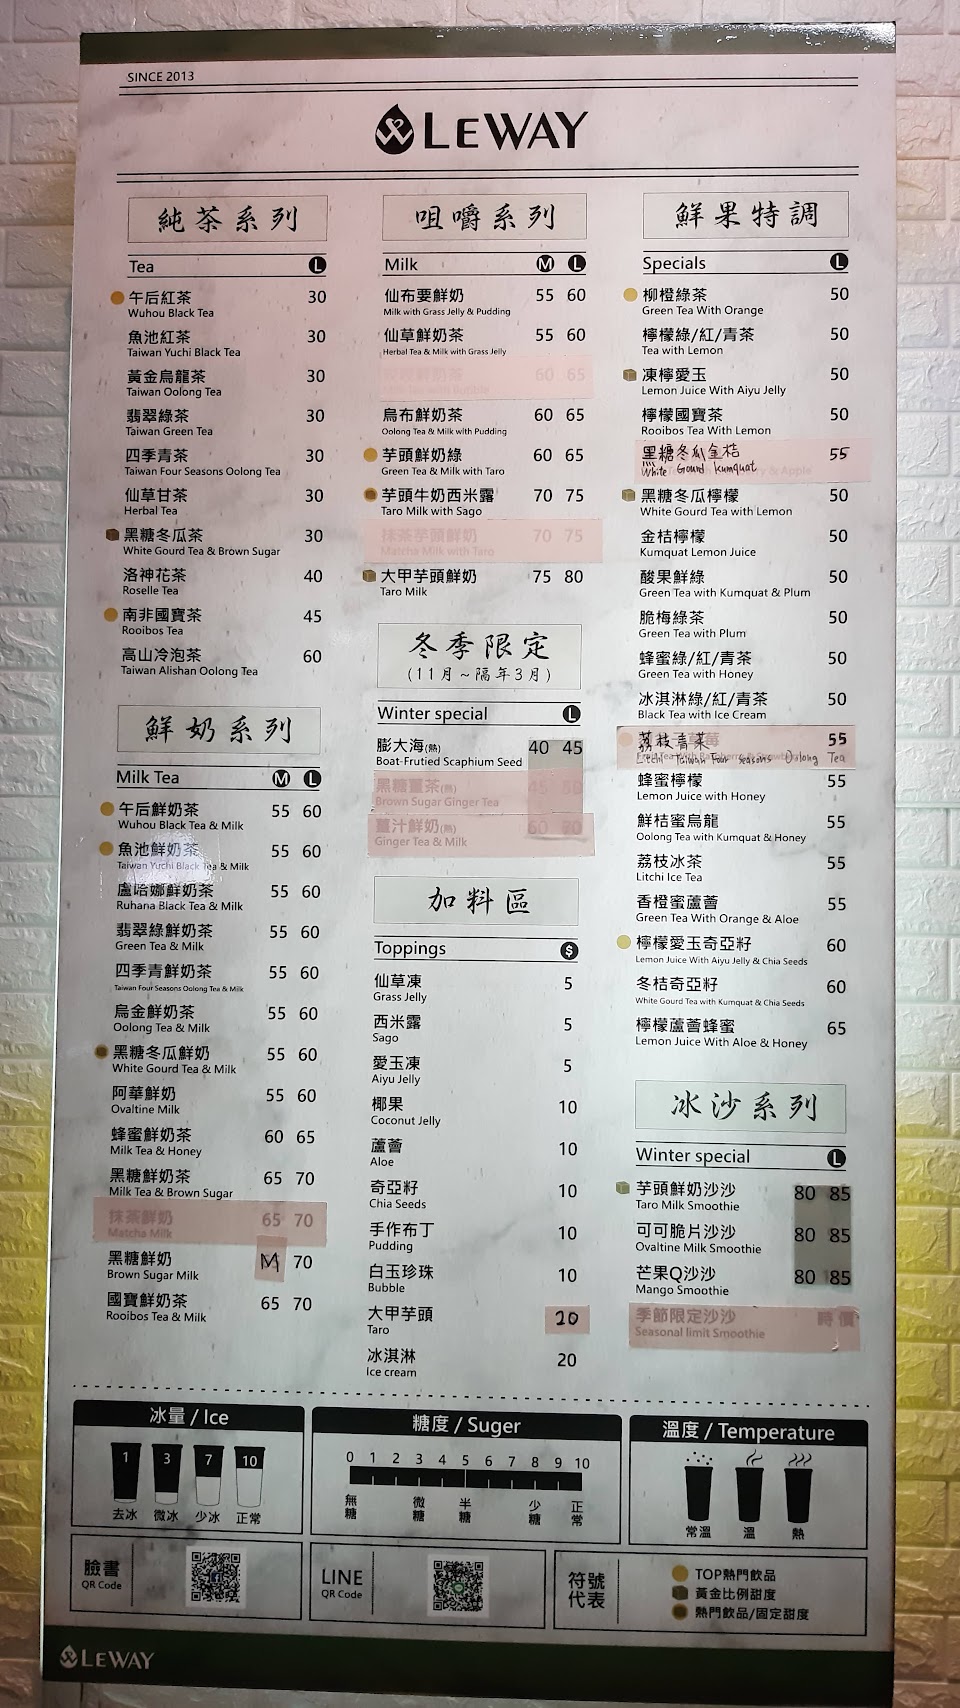 SINCE 2013
LEWAY
純茶系列
Tea L
午后紅茶 30
Wuhou Black Tea
魚池紅茶 30
Taiwan Yuchi Black Tea
黃金烏龍茶 30
Taiwan Oolong Tea
翡翠綠茶 30
Taiwan Green Tea
四季青茶 30
Taiwan Four Seasons Oolong Tea
仙草甘茶 30
Herbal Tea
黑糖冬瓜茶 30
White Gourd Tea & Brown Sugar
洛神花茶 40
Roselle Tea
南非國寶茶 45
Rooibos Tea
高山冷泡茶 60
Taiwan Alishan Oolong Tea
鮮奶系列
Milk Tea M L
午后鮮奶茶 55 60
Wuhou Black Tea & Milk
魚池鮮奶茶 55 60
Taiwan Yuchi Black Tea & Milk
盧哈娜鮮奶茶 55 60
Ruhana Black Tea & Milk
翡翠綠鮮奶茶 55 60
Green Tea & Milk
四季青鮮奶茶 55 60
Taiwan Four Seasons Oolong Tea & Milk
烏金鮮奶茶 55 60
Oolong Tea & Milk
黑糖冬瓜鮮奶 55 60
White Gourd Tea & Milk
阿華鮮奶 55 60
Ovaltine Milk
蜂蜜鮮奶茶 60 65
Milk Tea & Honey
黑糖鮮奶茶 65 70
Milk Tea & Brown Sugar
抹茶鮮奶 65 70
Matcha Milk
黑糖鮮奶 M 70
Brown Sugar Milk
國寶鮮奶茶 65 70
Rooibos Tea & Milk
咀嚼系列
Milk M L
仙布要鮮奶 55 60
Milk with Grass Jelly & Pudding
仙草鮮奶茶 55 60
Herbal Tea & Milk with Grass Jelly
鮮奶茶 60 65
with Bubble
烏布鮮奶茶 60 65
Oolong Tea & Milk with Pudding
芋頭鮮奶綠 60 65
Green Tea & Milk with Taro
芋頭牛奶西米露 70 75
Taro Milk with Sago
抹茶芋頭鮮奶 70 75
Matcha Milk with Taro
大甲芋頭鮮奶 75 80
Taro Milk
冬季限定
(11月~隔年3月)
Winter special L
膨大海(熱) 40 45
Boat-Frutied Scaphium Seed
黑糖薑茶(熱) 45 50
Brown Sugar Ginger Tea
薑汁鮮奶(熱) 60 70
Ginger Tea & Milk
加料區
Toppings $
仙草凍 5
Grass Jelly
西米露 5
Sago
愛玉凍 5
Aiyu Jelly
椰果 10
Coconut Jelly
蘆薈 10
Aloe
奇亞籽 10
Chia Seeds
手作布丁 10
Pudding
白玉珍珠 10
Bubble
大甲芋頭 20
Taro
冰淇淋 20
Ice cream
鮮果特調
Specials L
柳橙綠茶 50
Green Tea With Orange
檸檬綠/紅/青茶 50
Tea with Lemon
凍檸愛玉 50
Lemon Juice With Aiyu Jelly
檸檬國寶茶 50
Rooibos Tea With Lemon
黑糖冬瓜金桔 55
White Gourd Kumquat
黑糖冬瓜檸檬 50
White Gourd Tea with Lemon
金桔檸檬 50
Kumquat Lemon Juice
酸果鮮綠 50
Green Tea with Kumquat & Plum
脆梅綠茶 50
Green Tea with Plum
蜂蜜綠/紅/青茶 50
Green Tea with Honey
冰淇淋綠/紅/青茶 50
Black Tea with Ice Cream
荔枝青茶 55
Litchi Taiwan Four Seasons Oolong Tea
蜂蜜檸檬 55
Lemon Juice with Honey
鮮桔蜜烏龍 55
Oolong Tea with Kumquat & Honey
荔枝冰茶 55
Litchi Ice Tea
香橙蜜蘆薈 55
Green Tea With Orange & Aloe
檸檬愛玉奇亞籽 60
Lemon Juice With Aiyu Jelly & Chia Seeds
冬桔奇亞籽 60
White Gourd Tea with Kumquat & Chia Seeds
檸檬蘆薈蜂蜜 65
Lemon Juice With Aloe & Honey
冰沙系列
Winter special L
芋頭鮮奶沙沙 80 85
Taro Milk Smoothie
可可脆片沙沙 80 85
Ovaltine Milk Smoothie
芒果Q沙沙 80 85
Mango Smoothie
季節限定沙沙 時價
Seasonal limit Smoothie
冰量 / Ice
1 3 7 10
去冰 微冰 少冰 正常
糖度 / Suger
0 1 2 3 4 5 6 7 8 9 10
無糖 微糖 半糖 少糖 正常
溫度 / Temperature
常溫 溫 熱
臉書
QR Code
LINE
QR Code
符號代表
TOP熱門飲品
黃金比例甜度
熱門飲品/固定甜度
LEWAY